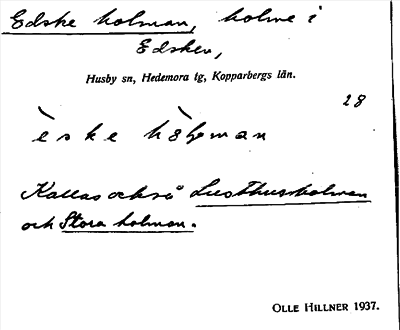 Edske holman, holme i
Edsken,
Husby sn, Hedemora tg, Kopparbergs län.
28
èske hòlman
Kallas också Lusthusholman
och Stora holman.
OLLE HILLNER 1937.